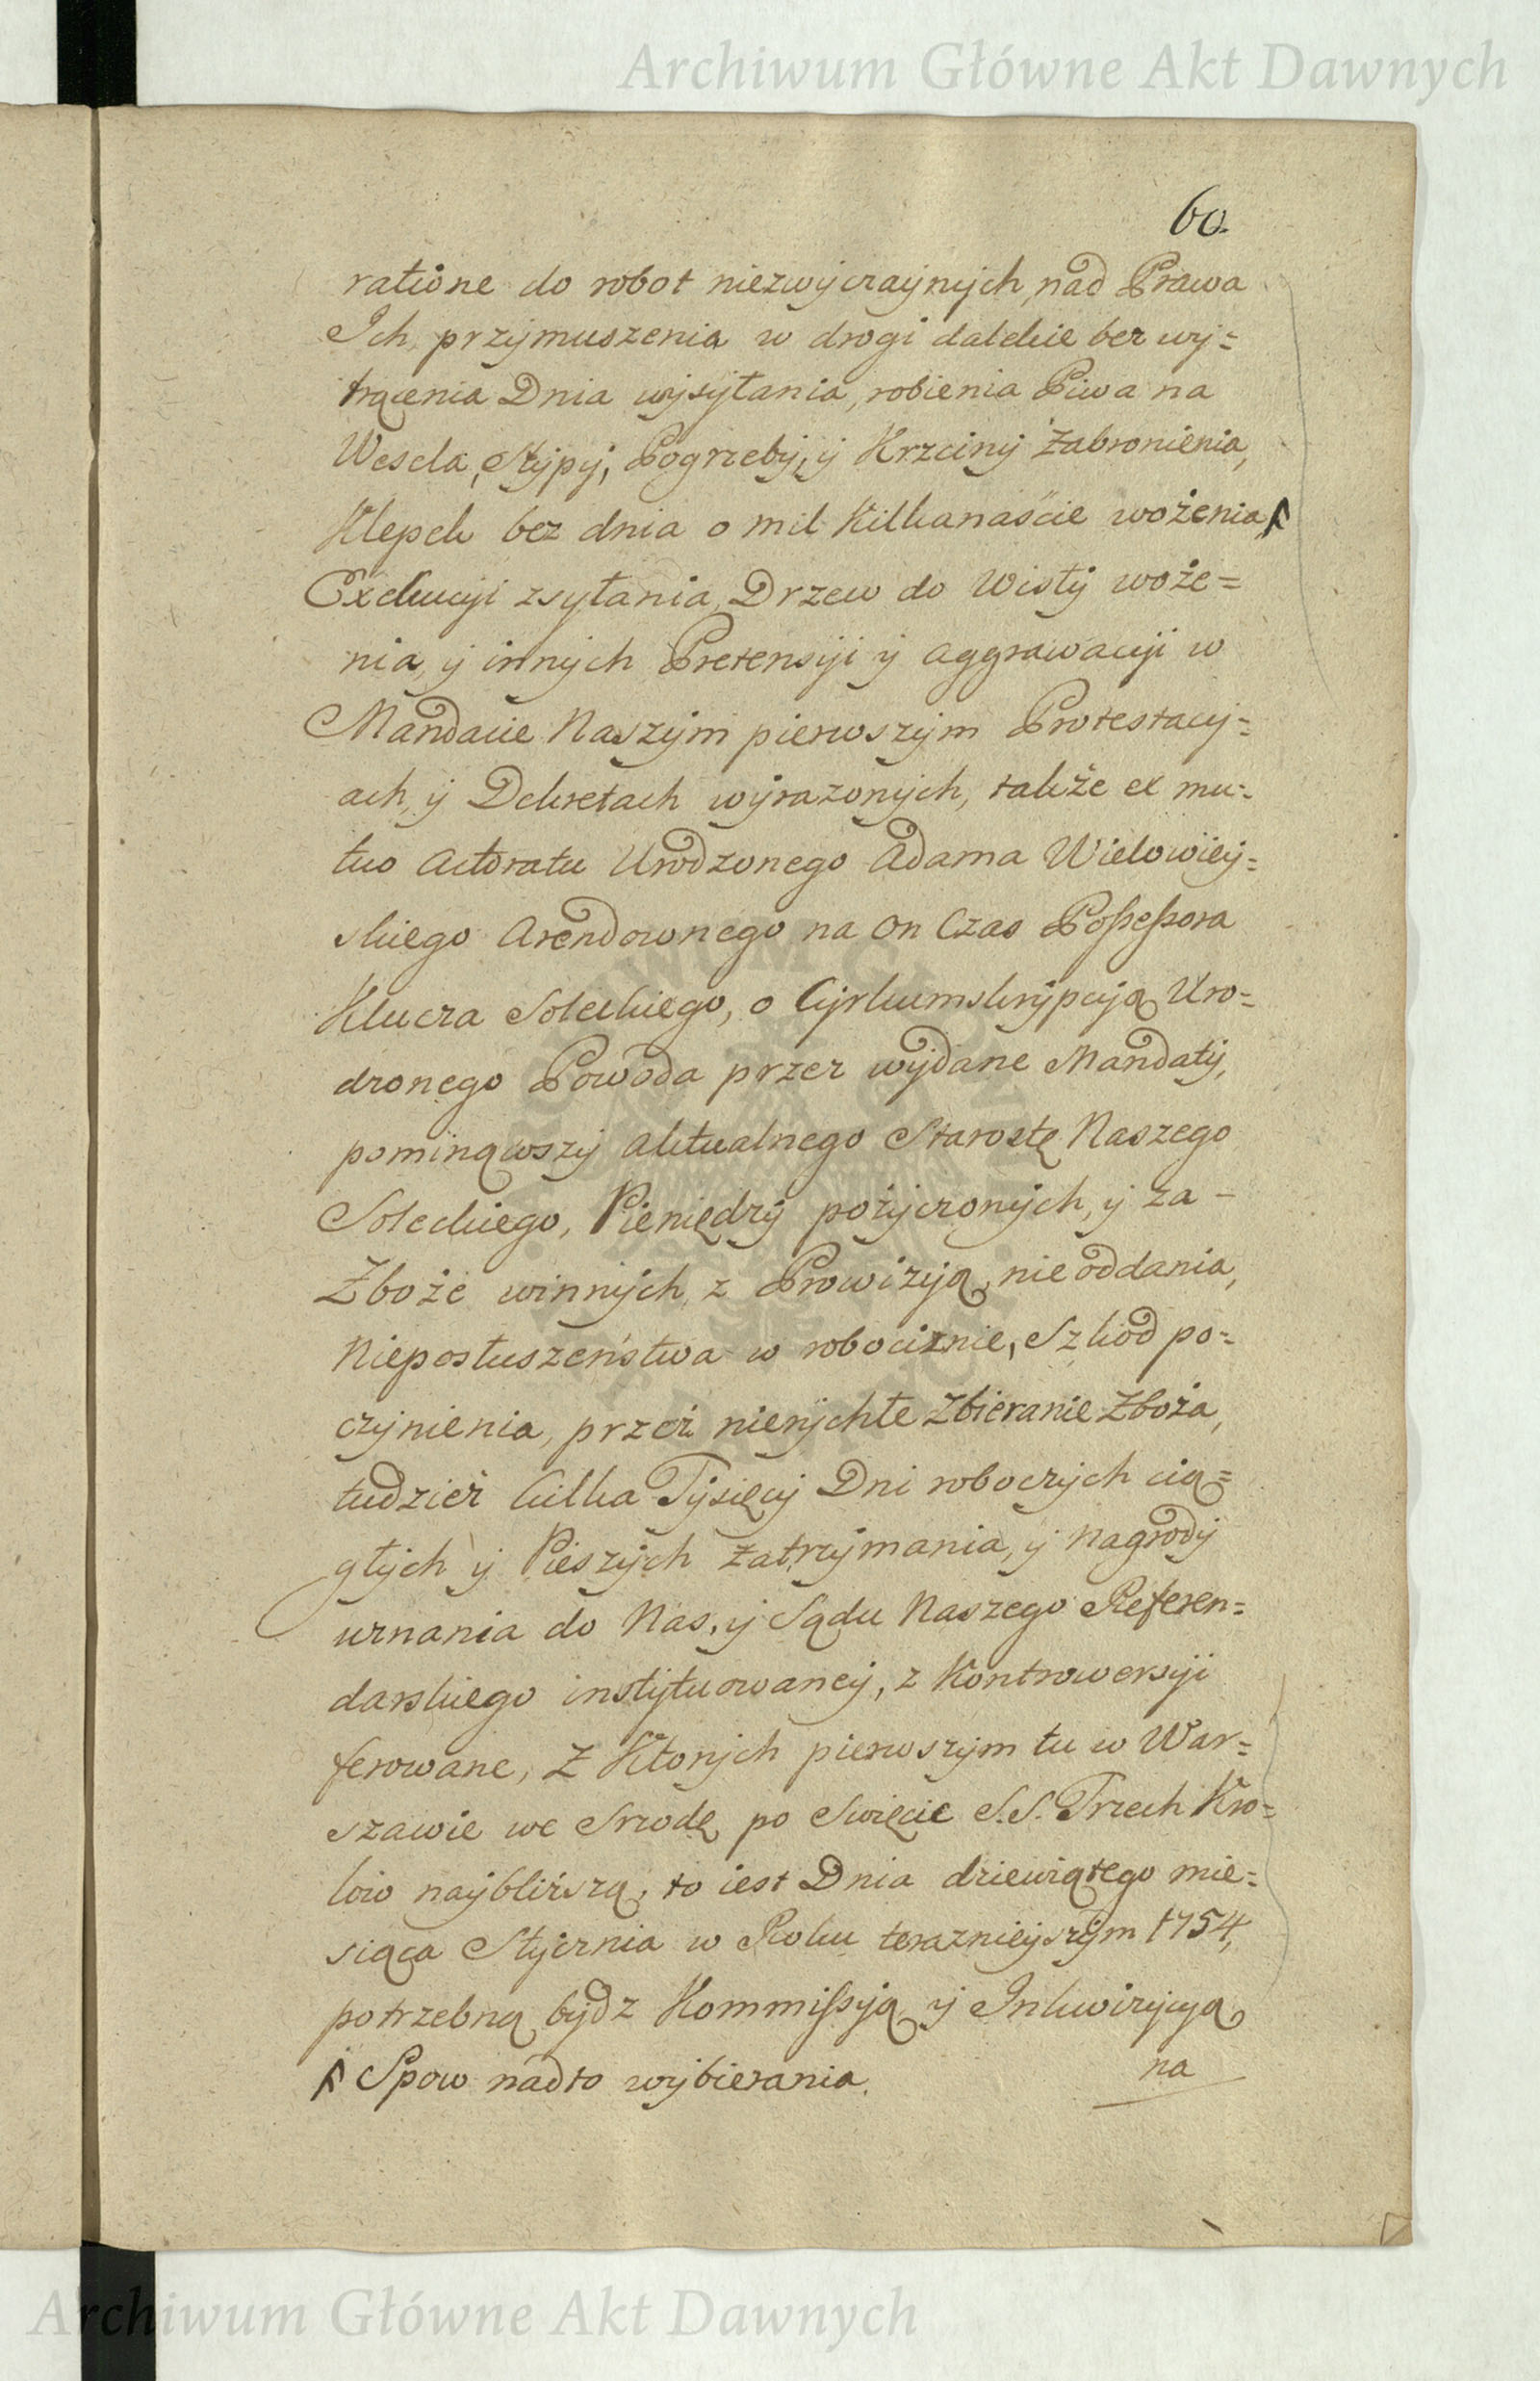 Archiwum Główne Akt Dawnych
60.
ratione do robot niezwyczaynych nad Prawa
Ich przymuszenia w drogi dalekie bez wy=
trącenia Dnia wysyłania, robienia Piwa na
Wesela, Stypy, Pogrzeby, y Krzciny zabronienia,
Klepek bez dnia o mil kilkanaście wożenia,
Exekucyi zsyłania, Drzew do Wisły woże=
nia, y innych Pretensyi y aggrawacyi w
Mandacie Naszym pierwszym Protestacy=
ach, y Dekretach wyrazonych, także ex mu=
tuo Actoratu Urodzonego Adama Wielowiey=
skiego Arendownego na on Czas Possessora
Klucza Soleckiego, o Cyrkumskrypcyą Uro=
dzonego Powoda przez wydane Mandaty,
pominąwszy aktualnego Starostę Naszego
Soleckiego, Pieniędzy pożyczonych, y za -
Zboże winnych z Prowizyą, nie oddania,
Nieposłuszeństwa w robociznie, Szkod po=
czynienia, przez nierychłe zbieranie Zboża,
tudzież kilka Tysięcy Dni roboczych cią=
głych y Pieszych zatrzymania, y nagrody
uznania do Nas, y Sądu Naszego Referen=
darskiego instytuowaney, z Kontrowersyi
ferowane, Z Ktorych pierwszym tu w War=
szawie we Srzodę po Swięcie S.S. Trzech Kro=
low naybliższą, to iest Dnia dziewiątego mie=
siąca Stycznia w Roku terazniejszym 1754,
potrzebną bydz Kommissyą y Inkwizycyą
Spow nadto wybierania.
na
Archiwum Główne Akt Dawnych